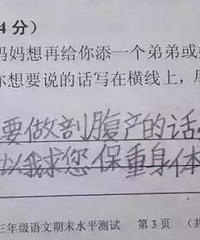 4分）
妈妈想再给你添一个弟弟或
你想要说的话写在横线上，
要做剖腹产的话
以我求您保重身体
三年级语文期末水平测试 第 3 页 （共